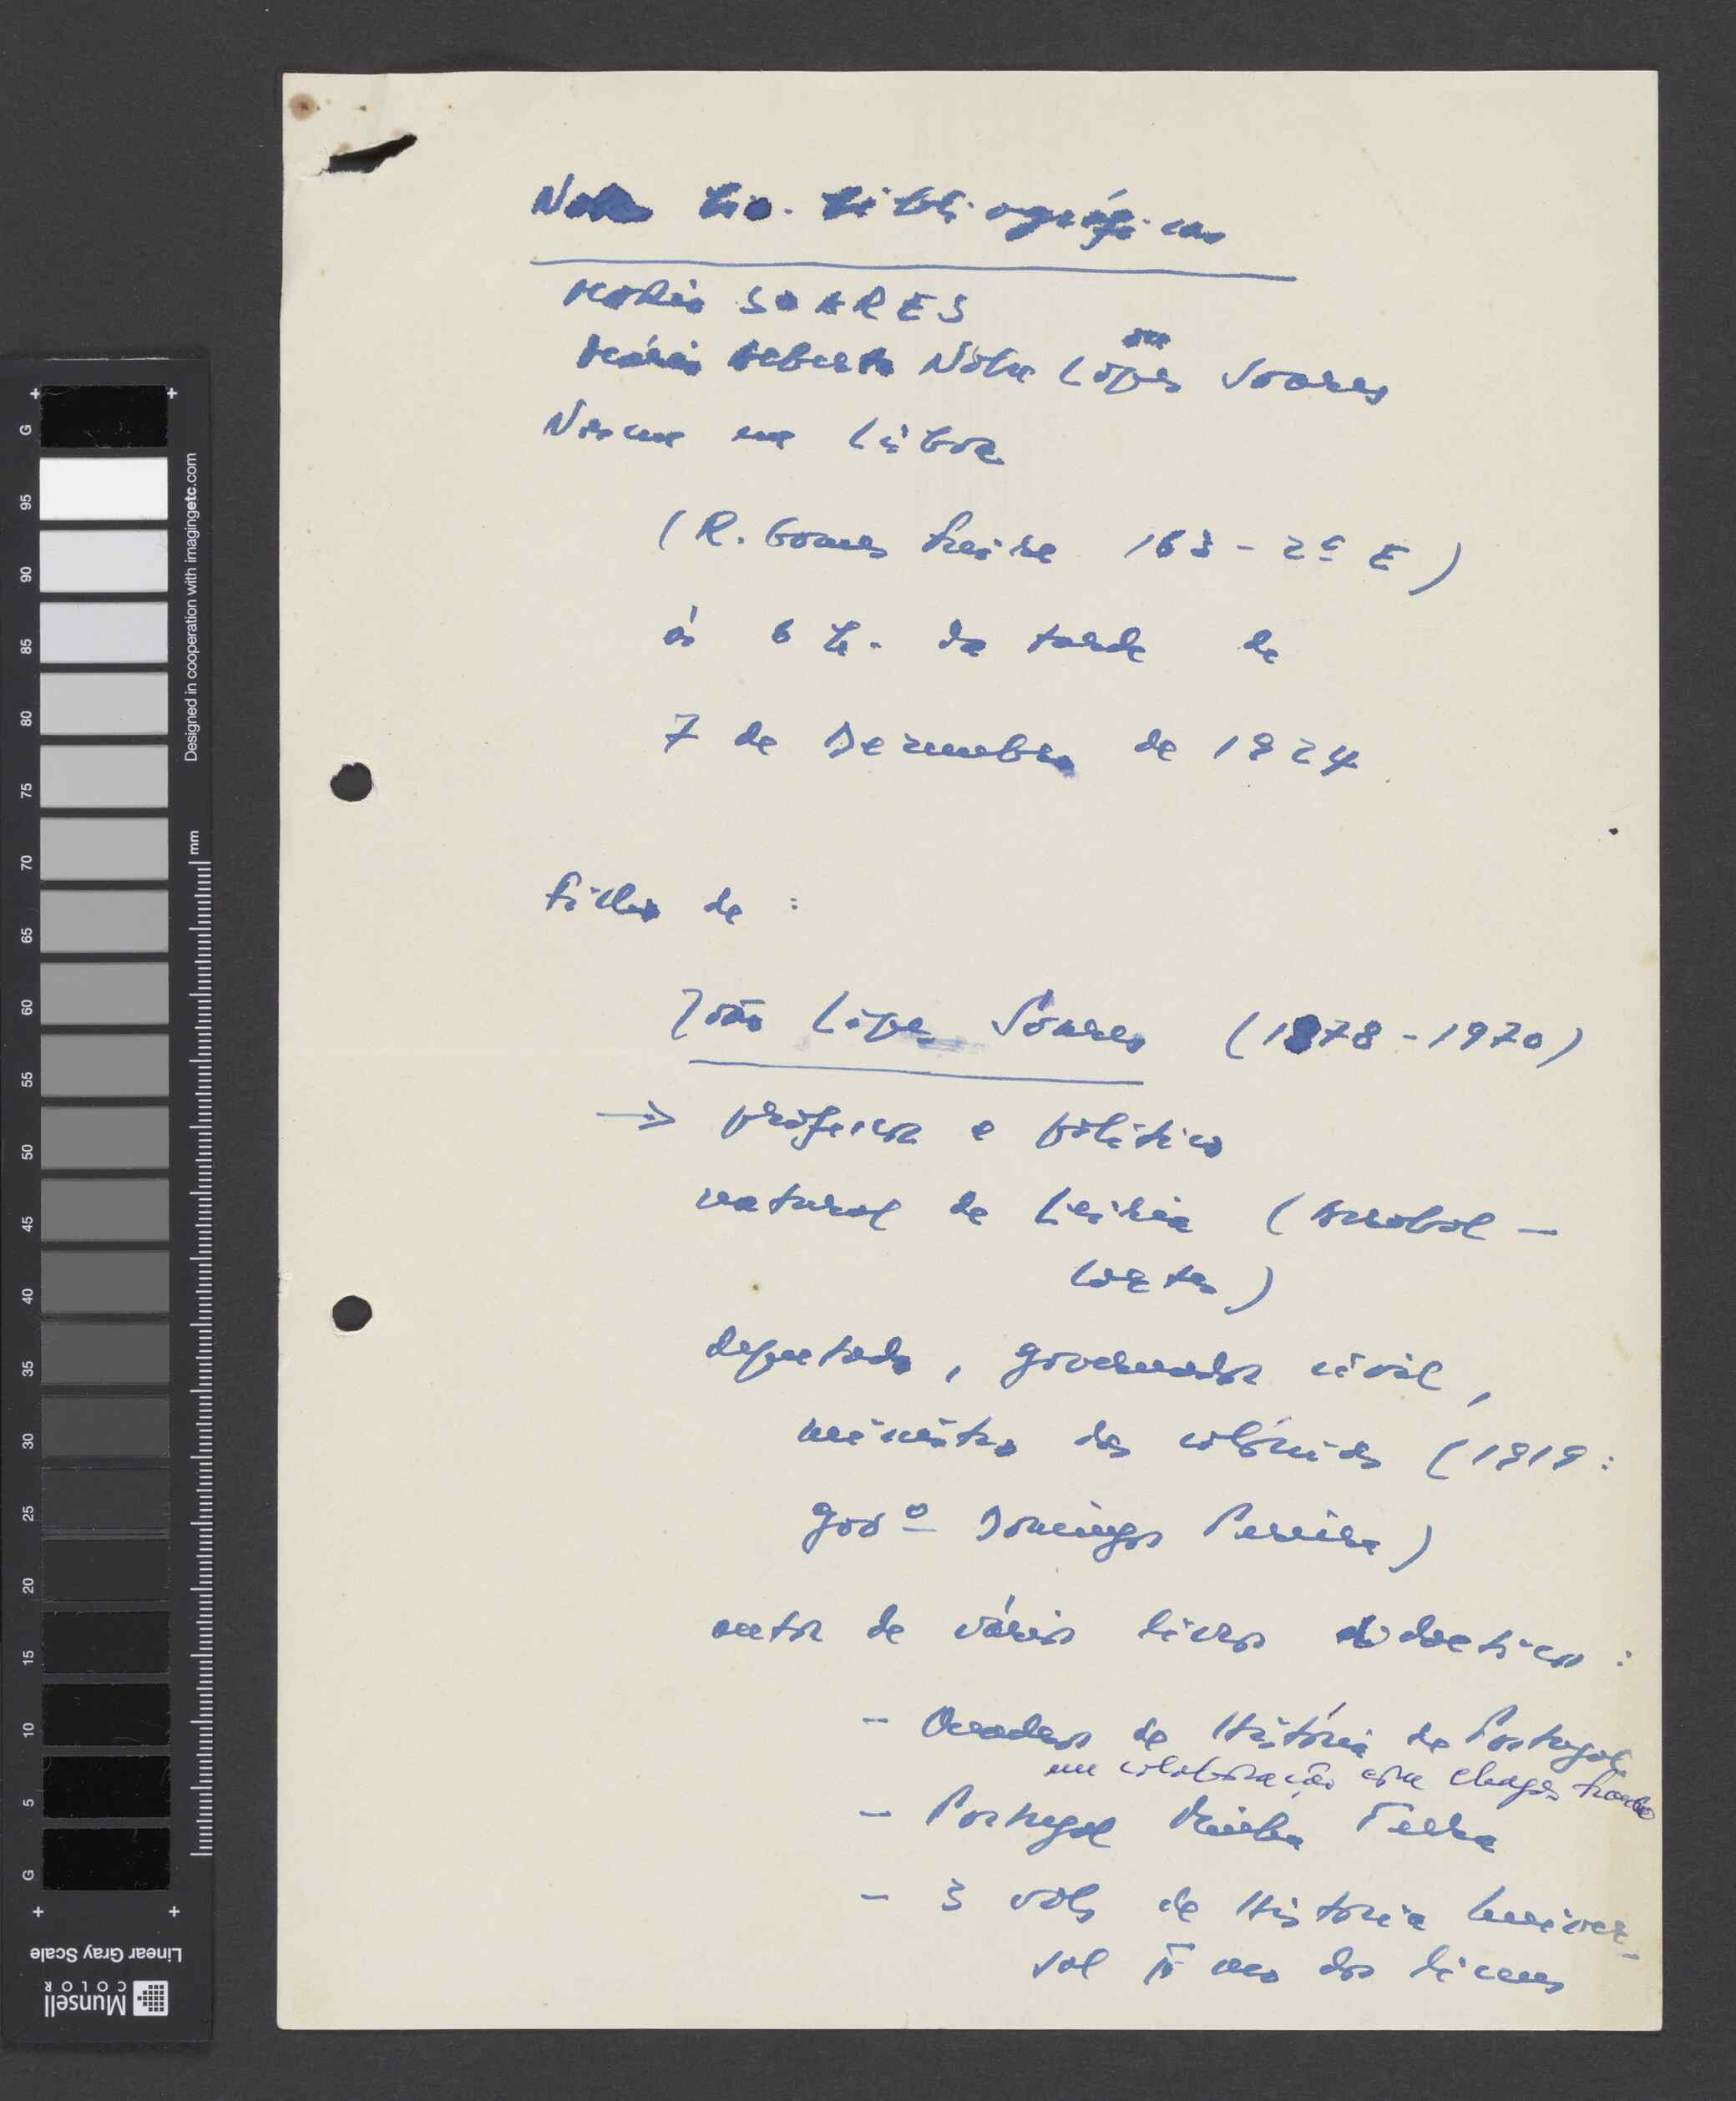 Notas bio-bibliográficas
MÁRIO SOARES
ou
Mário Alberto Nobre Lopes Soares
Nasceu em Lisboa
(R. Gomes Freire 163 - 2º E)
às 6 h. da tarde de
7 de Dezembro de 1924
Filho de :
João Lopes Soares (1878 - 1970)
→ professor e político
natural de Leiria (Arrabal –
Cortes)
deputado, governador civil,
ministro das colónias (1919 :
govº Domingos Pereira)
autor de vários livros didacticos :
- Quadros de História de Portugal
em colaboração com Chagas Franco
- Portugal Minha Terra
- 3 vols de História Univer-
sal pª uso dos liceus
G
95
90
85
80
75
70
65
60
55
50
45
40
35
30
25
20
15
10
5
G
mm
Designed in cooperation with imagingetc.com
Linear Gray Scale
Munsell
COLOR